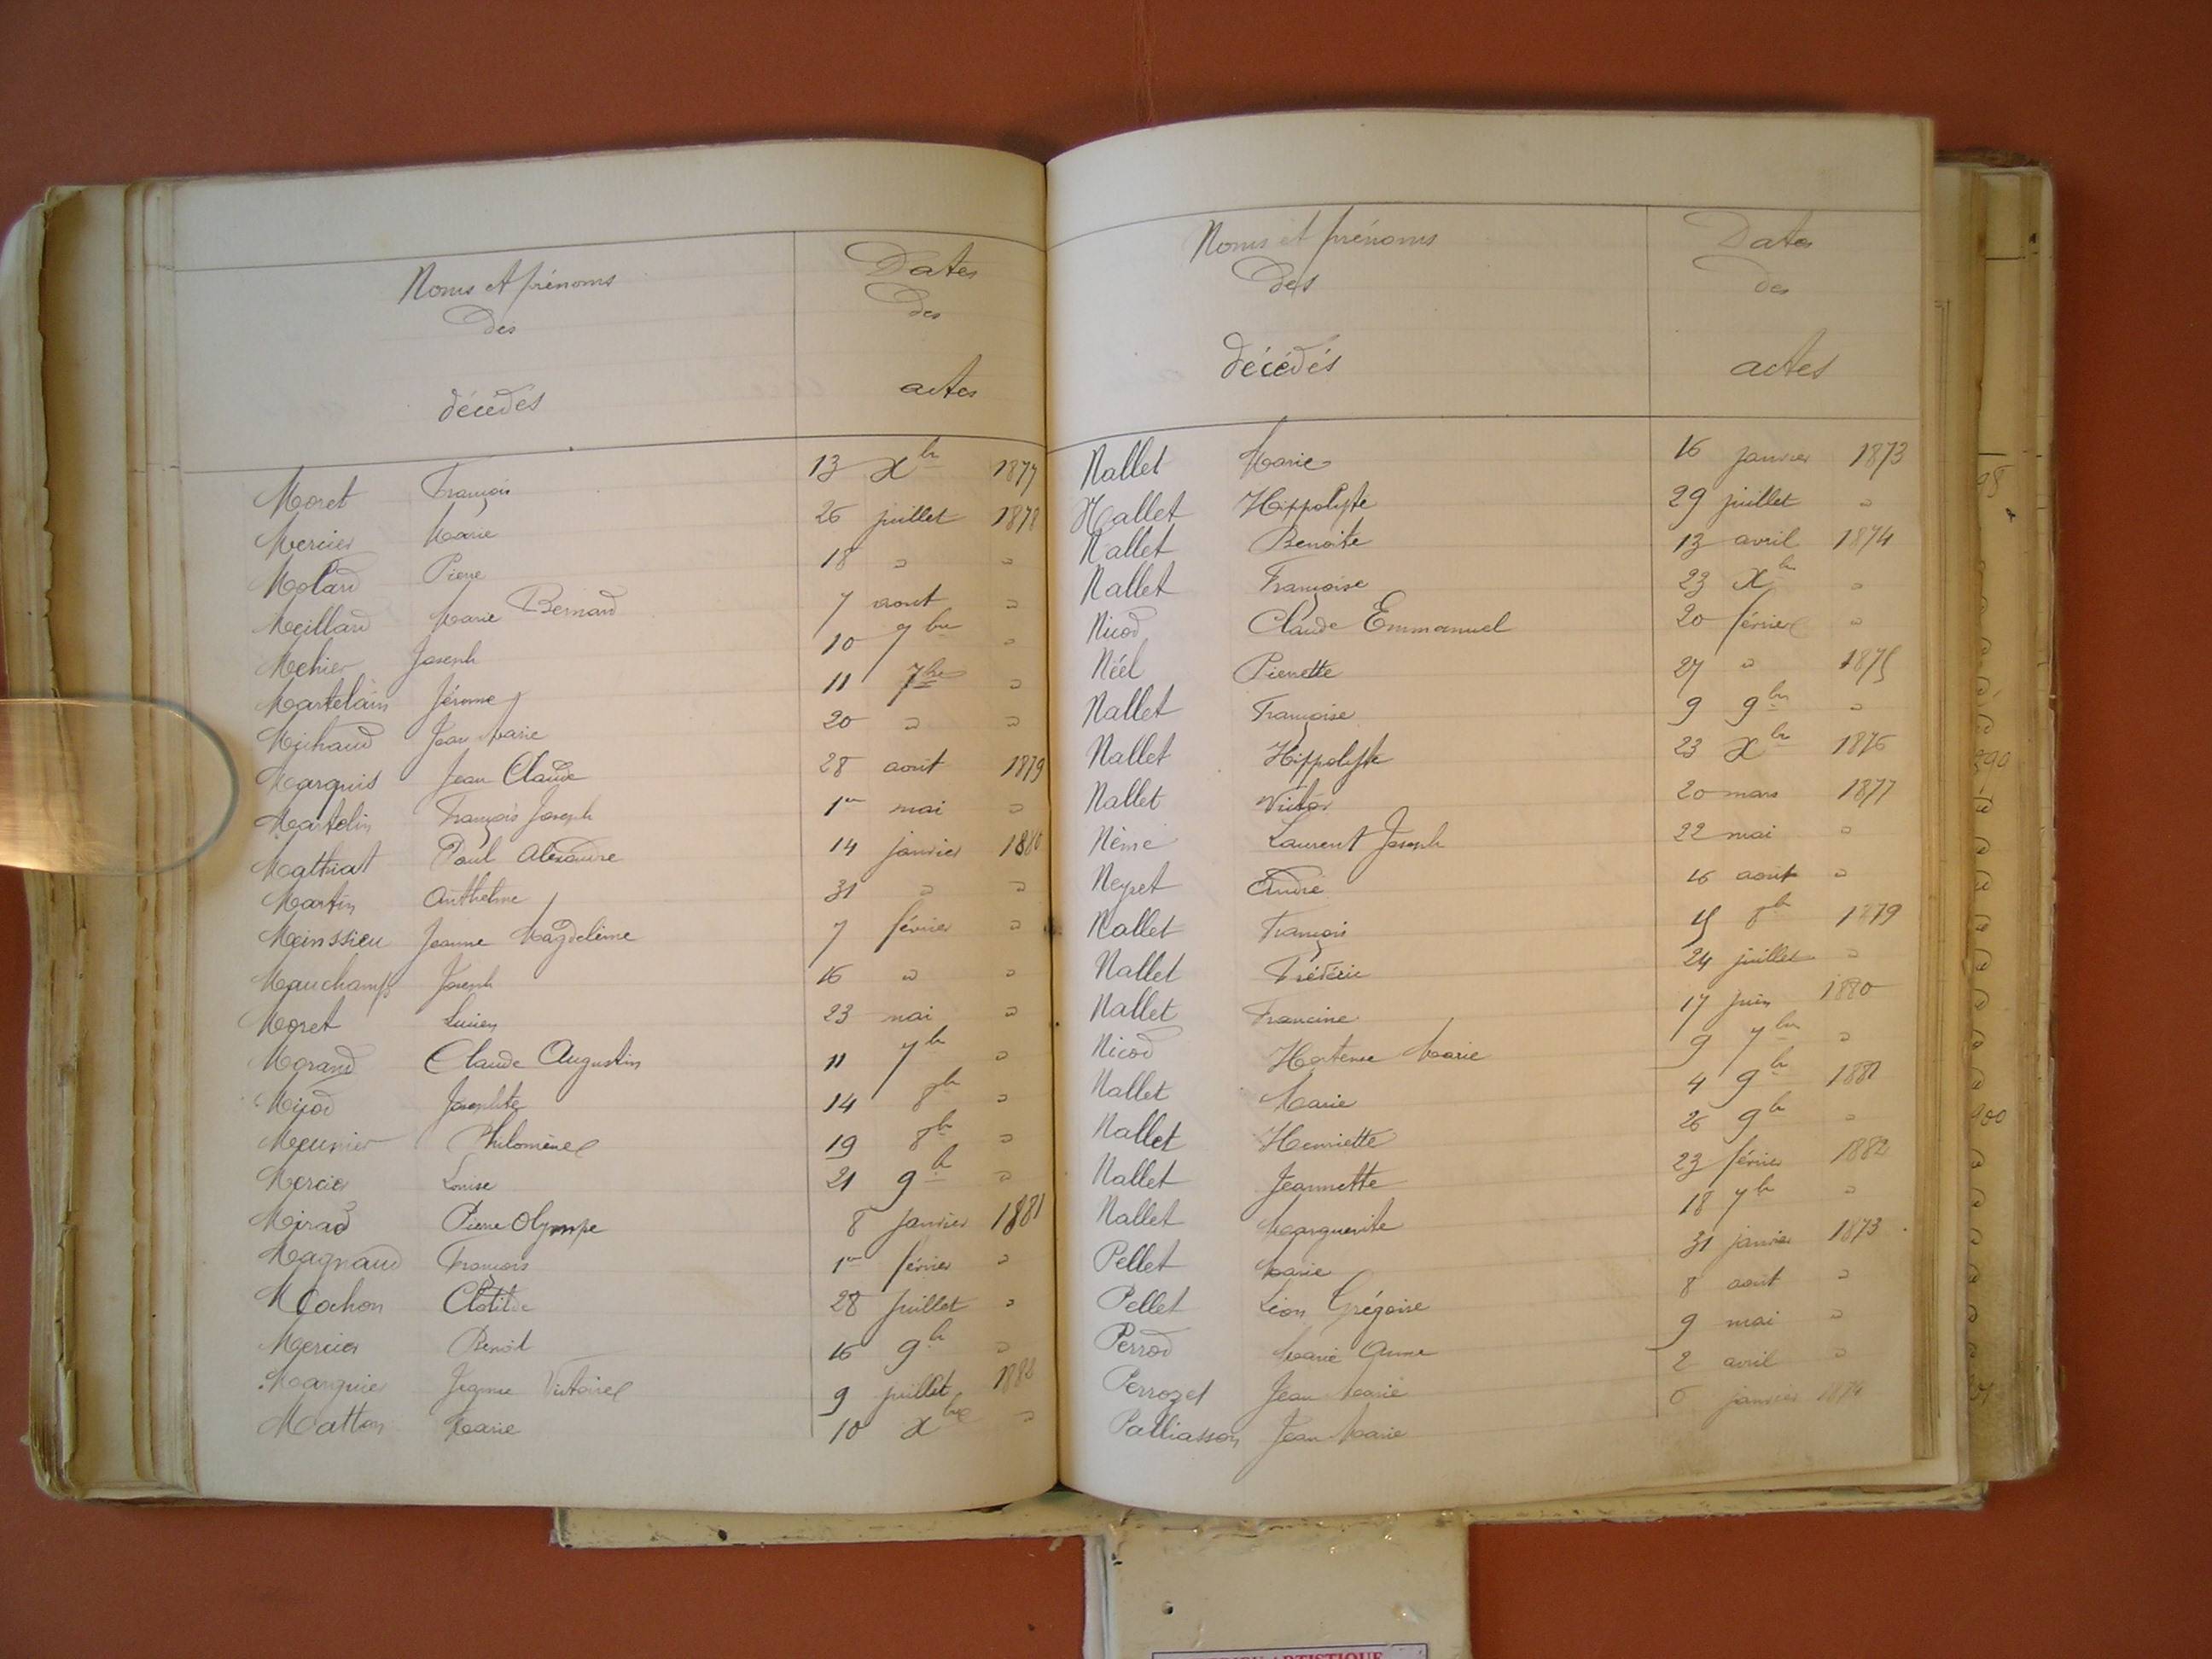 Noms et prénoms
des
décédés
Dates
des
actes
Moret François 13 Xbre 1877
Mercier Marie 26 juillet 1878
Molard Pierre 18 " "
Meillard Marie Bernard 7 aout "
Mehier Joseph 10 7bre "
Martelain Jérome 11 7bre "
Michaud Jean Marie 20 " "
Marquis Jean Claude 28 aout 1879
Martelin François Joseph 1er mai "
Mathiat Paul Alexandre 14 janvier 1880
Martin Anthelme 31 " "
Meinssieu Jeanne Magdeleine 7 février "
Mauchamp Joseph 16 " "
Moret Lucien 23 mai "
Morand Claude Augustin 11 7bre "
Josephte 14 8bre "
Meunier Philomène 19 8bre "
Mercier Louise 21 9bre "
Pierre Olympe 8 janvier 1881
Magnaud François 1er février "
Mochon Clotilde 28 juillet "
Mercier Benoit 16 9bre "
Marquis Jeanne Victoire 9 juillet 1882
Matton Marie 10 Xbre "
Noms et prénoms
des
décédés
Dates
des
actes
Nallet Marie 16 janvier 1873
Nallet Hippolyte 29 juillet "
Nallet Benoite 13 avril 1874
Nallet Françoise 23 Xbre "
Nicod Claude Emmanuel 20 février "
Néel Pierrette 27 " 1875
Nallet Françoise 9 9bre "
Nallet Hippolyte 23 Xbre 1876
Nallet Victor 20 mars 1877
Nème Laurent Joseph 22 mai "
Neyret André 16 aout "
Nallet François 15 8bre 1879
Nallet Frédéric 24 juillet "
Nallet Francine 17 juin 1880
Nicod Hortense Marie 9 7bre "
Nallet Marie 4 9bre 1881
Nallet Henriette 26 9bre "
Nallet Jeannette 23 février 1882
Nallet Marguerite 18 7bre "
Pellet Marie 31 janvier 1873
Pellet Léon Grégoire 8 aout "
Perrod Marie Anne 9 mai "
Perrozet Jean Marie 2 avril "
Palliasson Jean Marie 6 janvier 1874